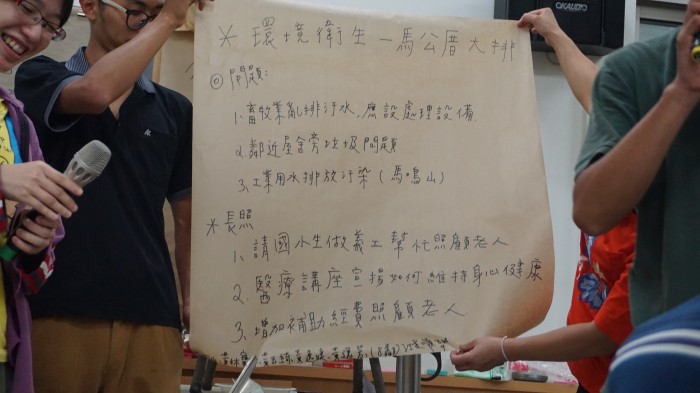 OKAUDIO
* 環境衛生－馬公厝大排
◎ 問題:
1. 畜牧業亂排汙水,應設處理設備.
2. 鄰近屋舍旁垃圾問題
3. 工業用水排放汙染(馬鳴山)
* 長照
1. 請國小生做義工幫忙照顧老人
2. 醫療講座宣揚如何維持身心健康
3. 增加補助經費照顧老人